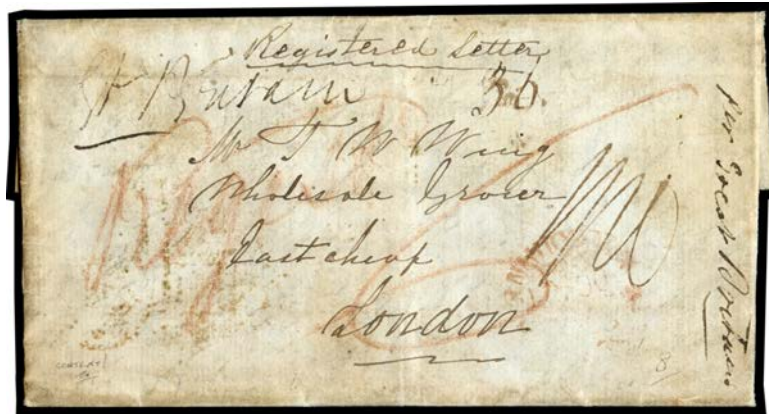 Registered Letter
Gt Britain 36
Mr T W Wing
Wholesale Grocer
East cheap
London
Per Great Britain
8